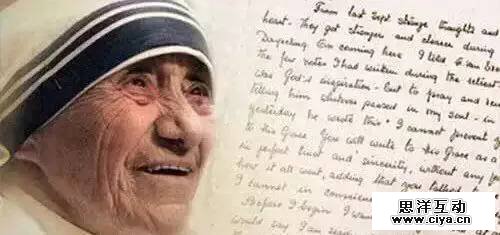 From last Sept. strange thoughts and
heart. They got stronger and clearer during
Darjeeling. On coming here I
the few notes I had written during the retreat
was God's inspiration - but to pray and
telling him whatever passed in my soul - in
yesterday he wrote this "I cannot prevent
to His Grace. You will write to His Grace as a
his perfect trust and sincerity, without any
how it all went, adding that you talked
I cannot in conscience
Before I begin I want
would say I am ready
思洋互动
www.ciya.cn